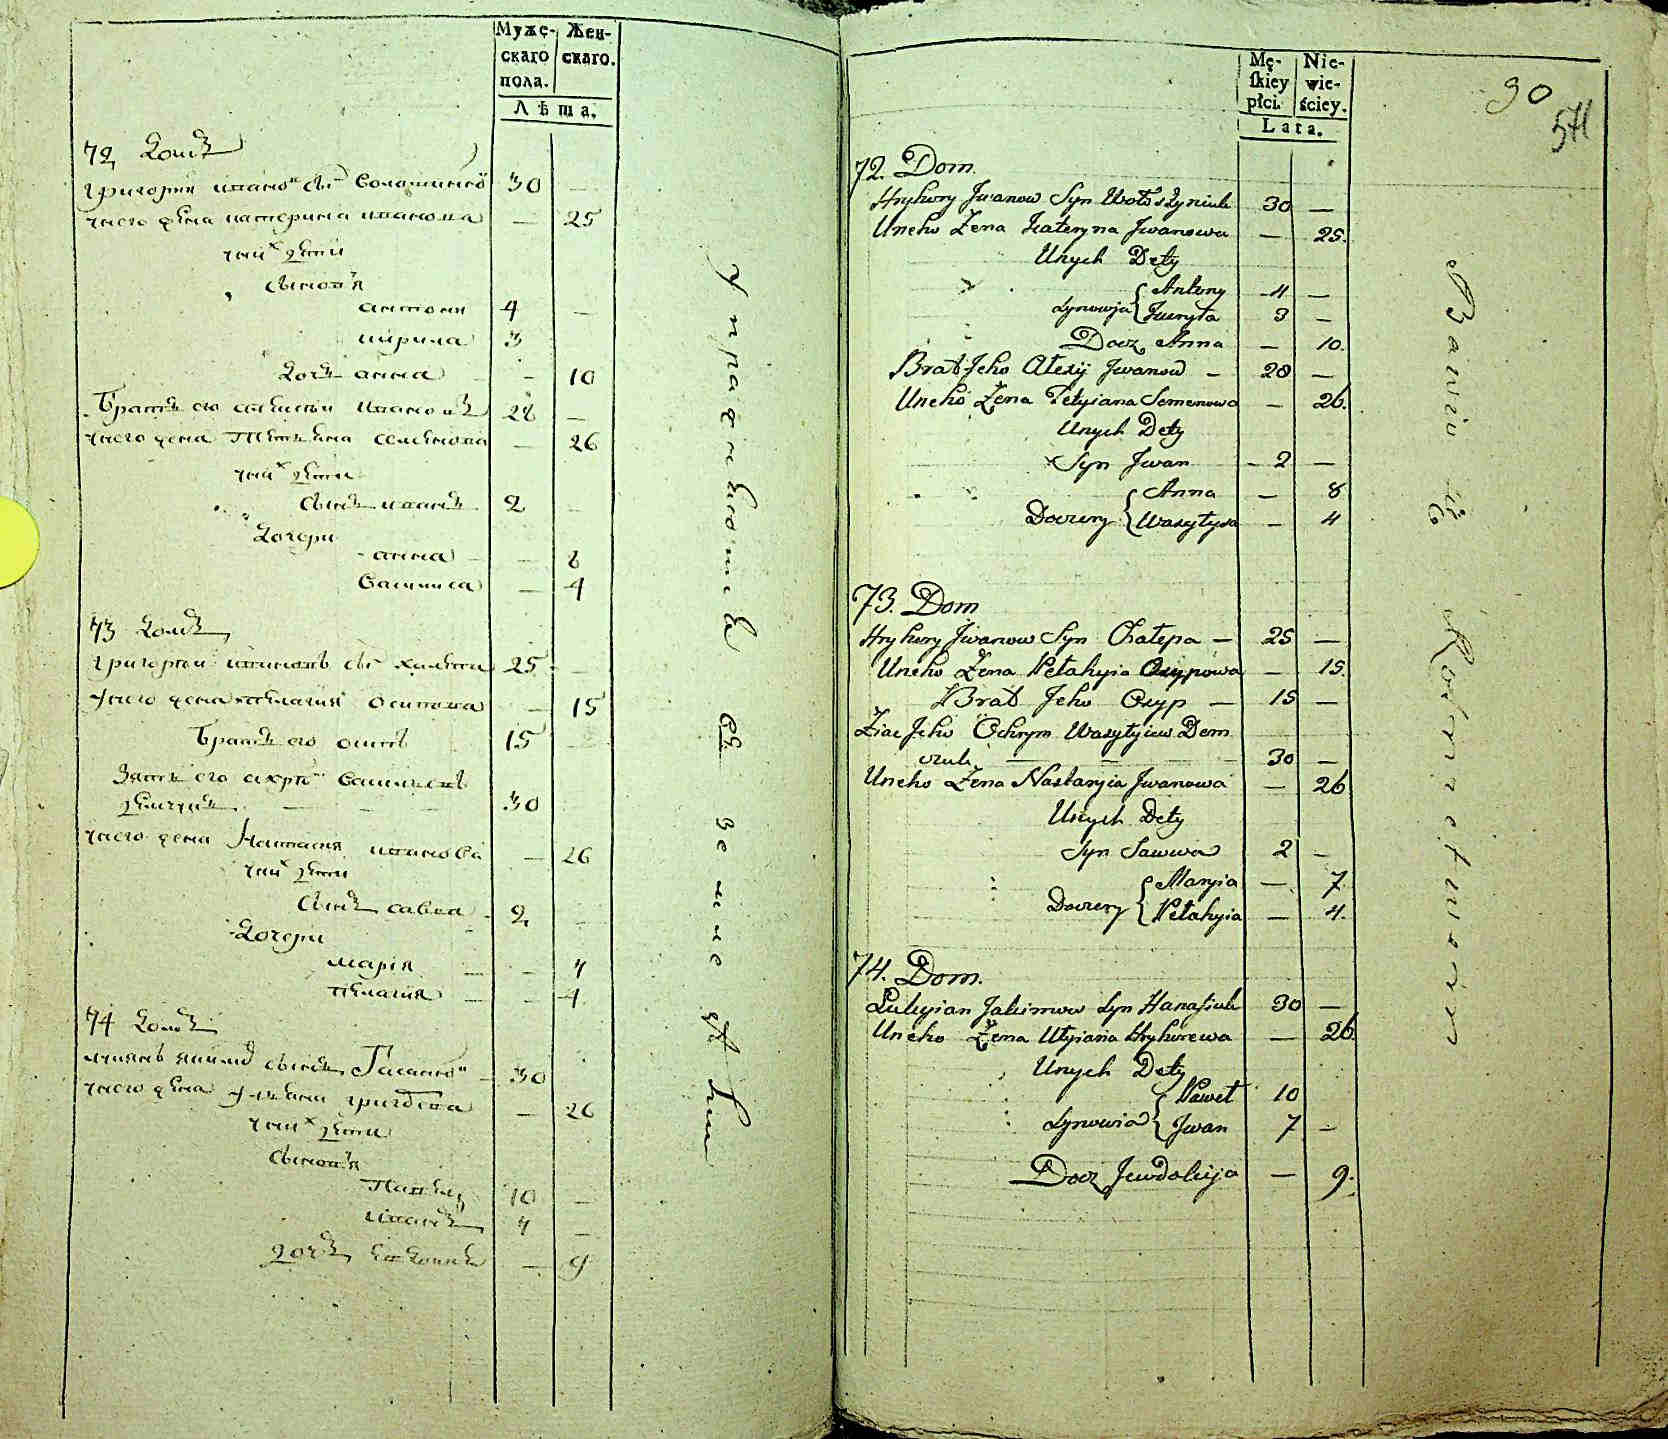 Муже-
скаго
пола.
Жен-
скаго.
Лѣта.
72 Домъ
Григорій Иванов сынъ
30 —
у него жена Катерина Иванова
— 25
у них дѣти
сыновья
Антоній
4 —
Кирила
3
дочь Анна
— 10
братъ его Алексѣй Ивановъ
28 —
у него жена Татьяна Семенова
— 26
у них дѣти
сынъ Иванъ
2 —
дочери
Анна
— 8
Василиса
— 4
73 Домъ
Григорій Ивановъ сынъ
25 —
у него жена Пелагия Осипова
— 15
братъ его Осипъ
15 —
зять его Охрѣм Васильевъ
30
у него жена Настасия Иванова
— 26
у них дѣти
сынъ Савва
2 —
дочери
Марія
— 7
Пелагия
— 4
74 Домъ
сынъ
30
у него жена
— 26
у них дѣти
сыновья
Павелъ
10 —
Иванъ
7 —
дочь
— 9
упражненіи въ земледѣліи
Mę-
skiey
płci.
Nie-
wie-
ściey.
Lata.
90
571
72. Dom.
Hryhory Jwanow Syn Wołoszyniuk 30 —
Uneho Żena Kateryna Jwanowa — 25.
Unych Dety
Synowja { Antony 4 —
Kuryła 3 —
Docz Anna — 10.
Brat Jeho Ałexij Jwanow — 28 —
Uneho Żena Tetyiana Semenowa — 26.
Unych Dety
Syn Jwan — 2 —
Doczery { Anna — 8
Wasyłysa — 4
73. Dom
Hryhory Jwanow Syn Chałepa — 25 —
Uneho Żena Pełahyia Osypowa — 15.
Brat Jeho Osyp — 15 —
Ziać Jeho Ochrym Wasyłyiew Dem
czuk — 30 —
Uneho Żena Nastasyia Jwanowa — 26
Unych Dety
Syn Sawwa 2 —
Doczery { Maryia — 7.
Pełahyia — 4.
74. Dom.
Łukyian Jakimow Syn Hanasiuk 30 —
Uneho Żena Ulyiana Hryhorewa — 26.
Unych Dety
Synowia { Paweł 10
Jwan 7 —
Docz Jewdokija — 9.
Bawią się Rolnictwem